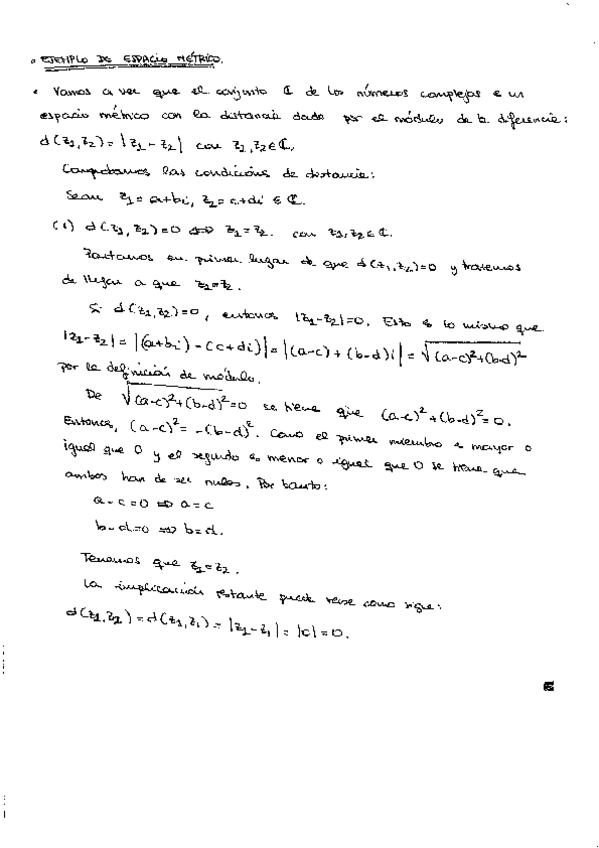 • EJEMPLO DE ESPACIO MÉTRICO.
• Vamos a ver que el conjunto ℂ de los números complejos es un
espacio métrico con la distancia dada por el módulo de la diferencia:
d(z₁,z₂) = |z₁ - z₂| con z₁,z₂ ∈ ℂ.
Comprobamos las condiciones de distancia:
Sean z₁ = a+bi, z₂ = c+di ∈ ℂ.
(i) d(z₁,z₂)=0 ⇔ z₁=z₂. con z₁,z₂ ∈ ℂ.
Partamos en primer lugar de que d(z₁,z₂)=0 y tratemos
de llegar a que z₁=z₂.
Si d(z₁,z₂)=0, entonces |z₁-z₂|=0. Esto es lo mismo que
|z₁-z₂| = |(a+bi) - (c+di)| = |(a-c) + (b-d)i| = √(a-c)²+(b-d)²
por la definición de módulo.
De √(a-c)²+(b-d)²=0 se tiene que (a-c)²+(b-d)²=0.
Entonces, (a-c)² = -(b-d)². Como el primer miembro es mayor o
igual que 0 y el segundo es menor o igual que 0 se tiene que
ambos han de ser nulos. Por tanto:
a-c=0 ⇒ a=c
b-d=0 ⇒ b=d.
Tenemos que z₁=z₂.
La implicación restante puede verse como sigue:
d(z₁,z₂) = d(z₁,z₁) = |z₁-z₁| = |0| = 0.